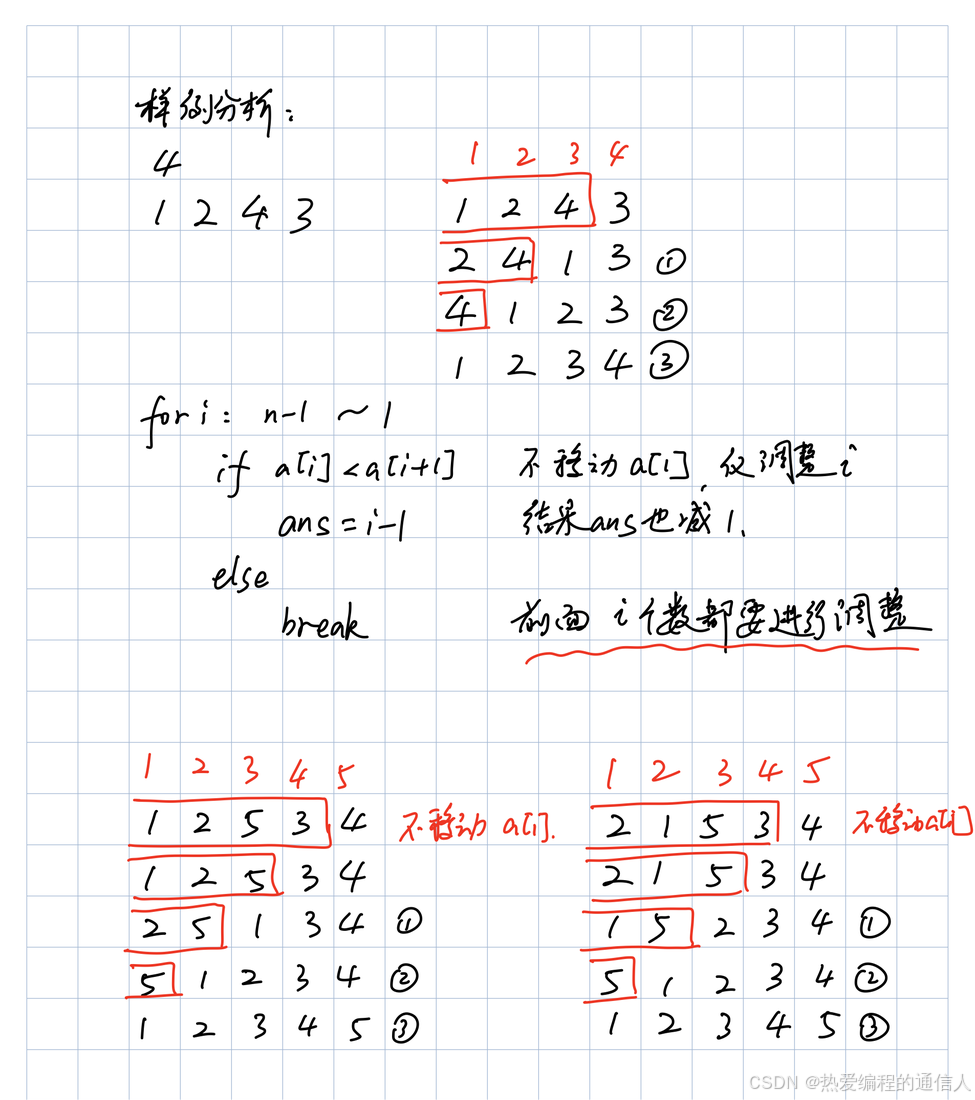 样例分析:
4
1 2 4 3
1 2 3 4
1 2 4 3
2 4 1 3 ①
4 1 2 3 ②
1 2 3 4 ③
for i: n-1 ~ 1
if a[i]<a[i+1] 不移动a[i], 仅调整i
ans=i-1 结果ans也减1.
else
break 前面i个数都要进行调整
1 2 3 4 5
1 2 5 3 4 不移动 a[i].
1 2 5 3 4
2 5 1 3 4 ①
5 1 2 3 4 ②
1 2 3 4 5 ③
1 2 3 4 5
2 1 5 3 4 不移动a[i]
2 1 5 3 4
1 5 2 3 4 ①
5 1 2 3 4 ②
1 2 3 4 5 ③
CSDN @热爱编程的通信人